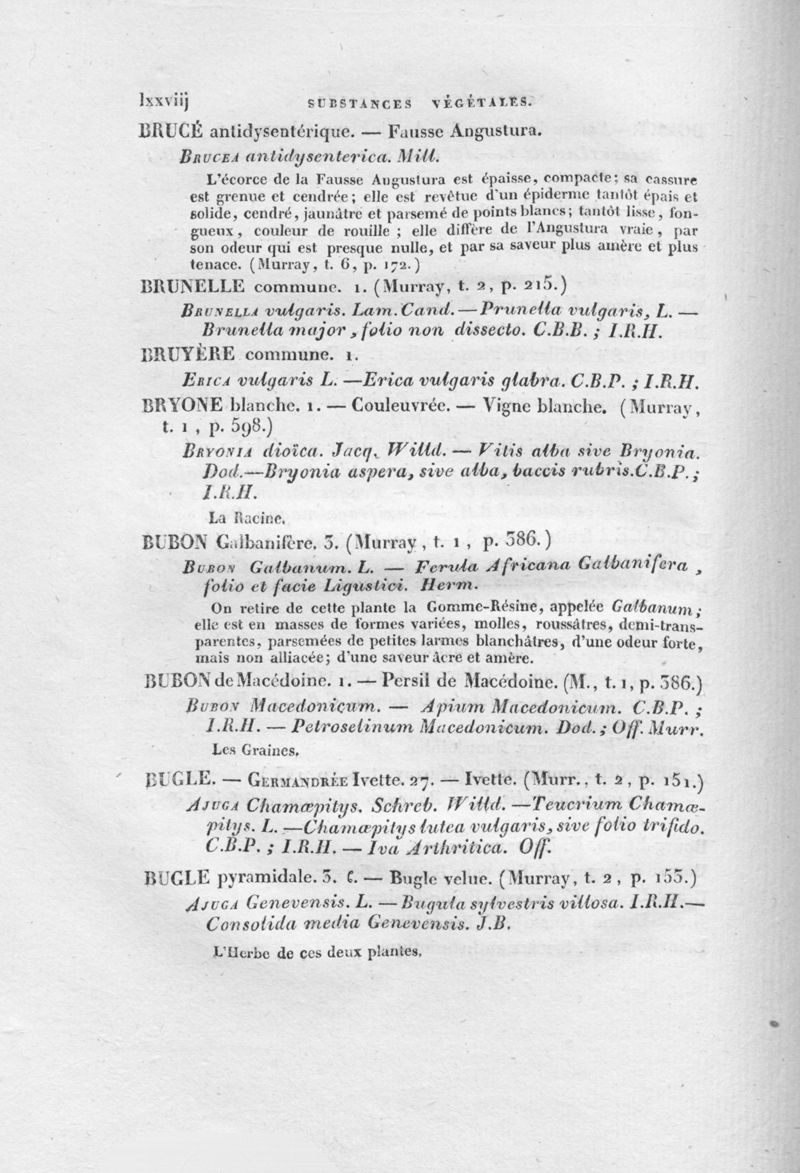 lxxviij SUBSTANCES VÉGÉTALES.
BRUCÉ antidysentérique. — Fausse Angustura.
BRUCEA antidysenterica. Mill.
L'écorce de la Fausse Augustura est épaisse, compacte; sa cassure
est grenue et cendrée; elle est revêtue d'un épiderme tantôt épais et
solide, cendré, jaunâtre et parsemé de points blancs; tantôt lisse, fon-
gueux, couleur de rouille; elle diffère de l'Angustura vraie, par
son odeur qui est presque nulle, et par sa saveur plus amère et plus
tenace. (Murray, t. 6, p. 172.)
BRUNELLE commune. 1. (Murray, t. 2, p. 215.)
BRUNELLA vulgaris. Lam. Cand. — Prunella vulgaris, L. —
Brunella major, folio non dissecto. C.B.B. ; I.R.H.
BRUYÈRE commune. 1.
ERICA vulgaris L. — Erica vulgaris glabra. C.B.P. ; I.R.H.
BRYONE blanche. 1. — Couleuvrée. — Vigne blanche. (Murray,
t. 1, p. 598.)
BRYONIA dioïca. Jacq. Willd. — Vitis alba sive Bryonia.
Dod. — Bryonia aspera, sive alba, baccis rubris. C.B.P. ;
I.R.H.
La Racine.
BUBON Galbanifère. 3. (Murray, t. 1, p. 386.)
BUBON Galbanum. L. — Ferula Africana Galbanifera,
folio et facie Ligustici. Herm.
On retire de cette plante la Gomme-Résine, appelée Galbanum;
elle est en masses de formes variées, molles, roussâtres, demi-trans-
parentes, parsemées de petites larmes blanchâtres, d'une odeur forte,
mais non alliacée; d'une saveur âcre et amère.
BUBON de Macédoine. 1. — Persil de Macédoine. (M., t. 1, p. 386.)
BUBON Macedonicum. — Apium Macedonicum. C.B.P. ;
I.R.H. — Petroselinum Macedonicum. Dod. ; Off. Murr.
Les Graines.
BUGLE. — GERMANDRÉE Ivette. 27. — Ivette. (Murr., t. 2, p. 151.)
AJUGA Chamæpitys. Schreb. Willd. — Teucrium Chamæ-
pitys. L. — Chamæpitys lutea vulgaris, sive folio trifido.
C.B.P. ; I.R.H. — Iva Arthritica. Off.
BUGLE pyramidale. 3. C. — Bugle velue. (Murray, t. 2, p. 155.)
AJUGA Genevensis. L. — Bugula sylvestris villosa. I.R.H. —
Consolida media Genevensis. J.B.
L'Herbe de ces deux plantes.